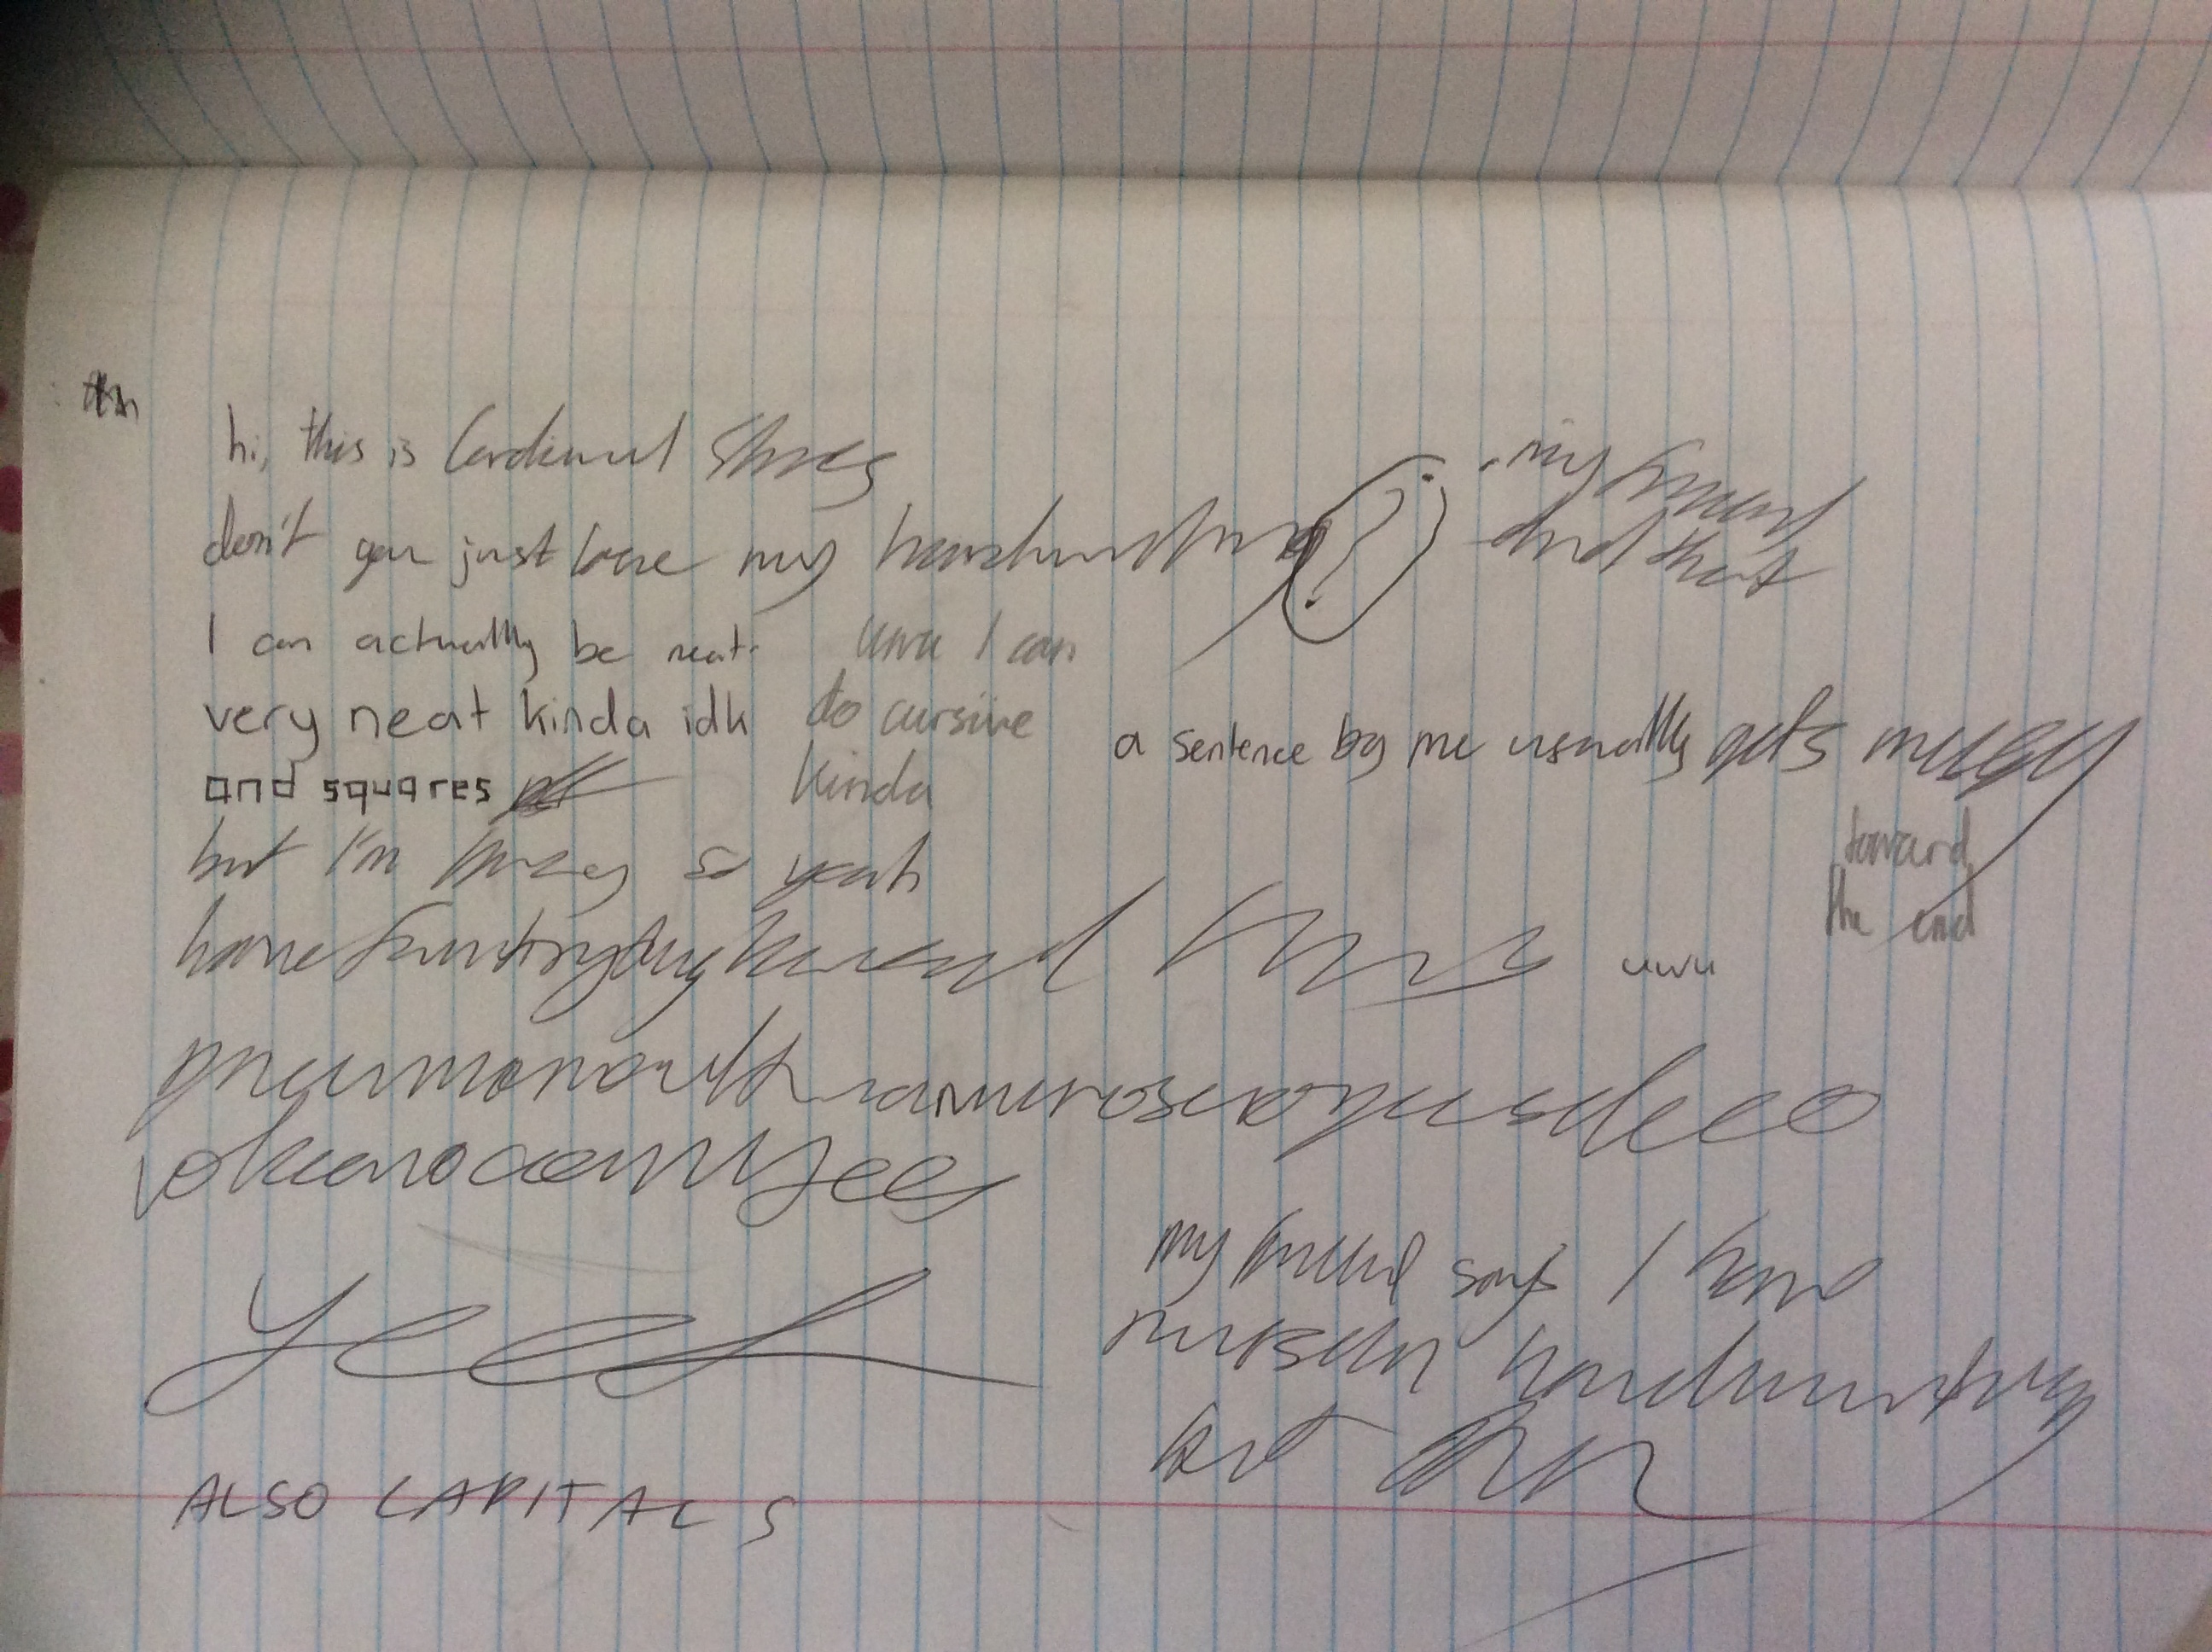 hi, this is Cardinal
don't you just love my handwriting
my friend
did that
I can actually be neat.
uwu I can
very neat kinda idk
do cursive
and squares
kinda
a sentence by me usually gets messy
toward
the end
but I'm so yeah
have fun trying to read this
uwu
pneumonoultramicroscopicsilico
volcanoconiosis
my friend says I have
handwriting
but
yeet
ALSO CAPITALS